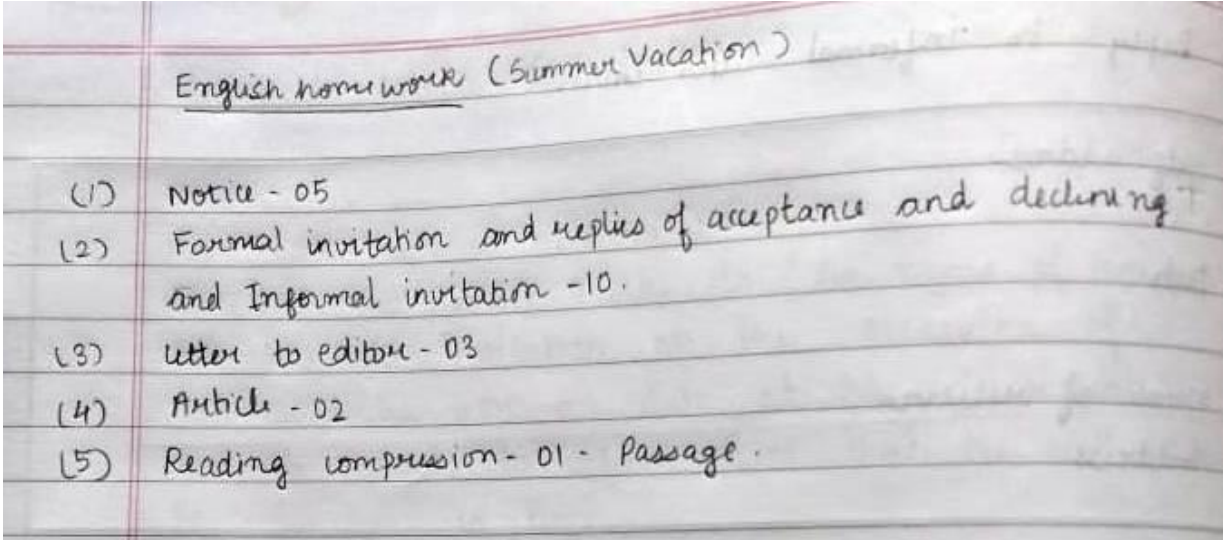 English homework (Summer Vacation)
(1) Notice - 05
(2) Formal invitation and replies of acceptance and declining
and Informal invitation - 10.
(3) letter to editor - 03
(4) Article - 02
(5) Reading compression - 01 - Passage.